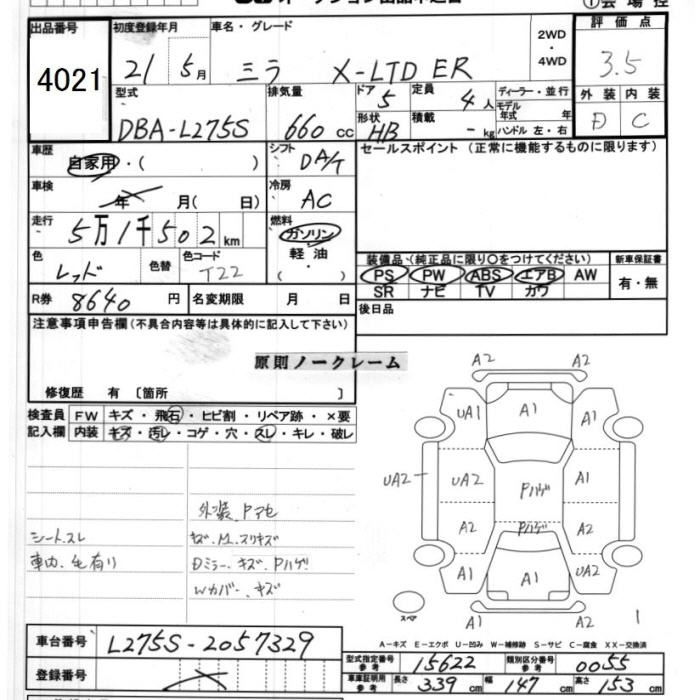 ①会場控
出品番号 4021
初度登録年月 21 5月
車名・グレード ミラ X-LTD ER
2WD・4WD
評価点 3.5
型式 DBA-L275S
排気量 660cc
ドア 5
定員 4人
ディーラー・並行
モデル年式 年
形状 HB
積載 -kg
ハンドル 左・右
外装 D 内装 C
車歴 自家用・( )
シフト DA/T
セールスポイント (正常に機能するものに限ります)
車検 年 月( 日)
冷房 AC
走行 5万1千502km
燃料 ガソリン・軽油
色 レッド 色替
色コード T22
装備品 (純正品に限り○をつけてください)
新車保証書
PS PW ABS エアB AW
有・無
SR ナビ TV カワ
R券 8640円
名変期限 月 日
後日品
注意事項申告欄(不具合内容等は具体的に記入して下さい)
原則ノークレーム
修復歴 有 〔箇所 〕
検査員記入欄
FW キズ・飛石・ヒビ割・リペア跡・×要
内装 キズ・汚レ・コゲ・穴・スレ・キレ・破レ
A2 A2
UA1 A1 A1
UA2 UA2 Pハゲ A1
A2 Pハゲ A2
A1 A1 UA2
A2 A2
外装、Pアセ
シート、スレ
車内、毛有り
Dミラー、キズ、Pハゲ
Wカバー、キズ
スペア
1
A-キズ E-エクボ U-凹み W-補修跡 S-サビ C-腐食 XX-交換済
車台番号 L275S-2057329
型式指定番号参考 15622
類別区分番号参考 0055
登録番号
車庫証明用参考 長さ 339cm 幅 147cm 高さ 153cm